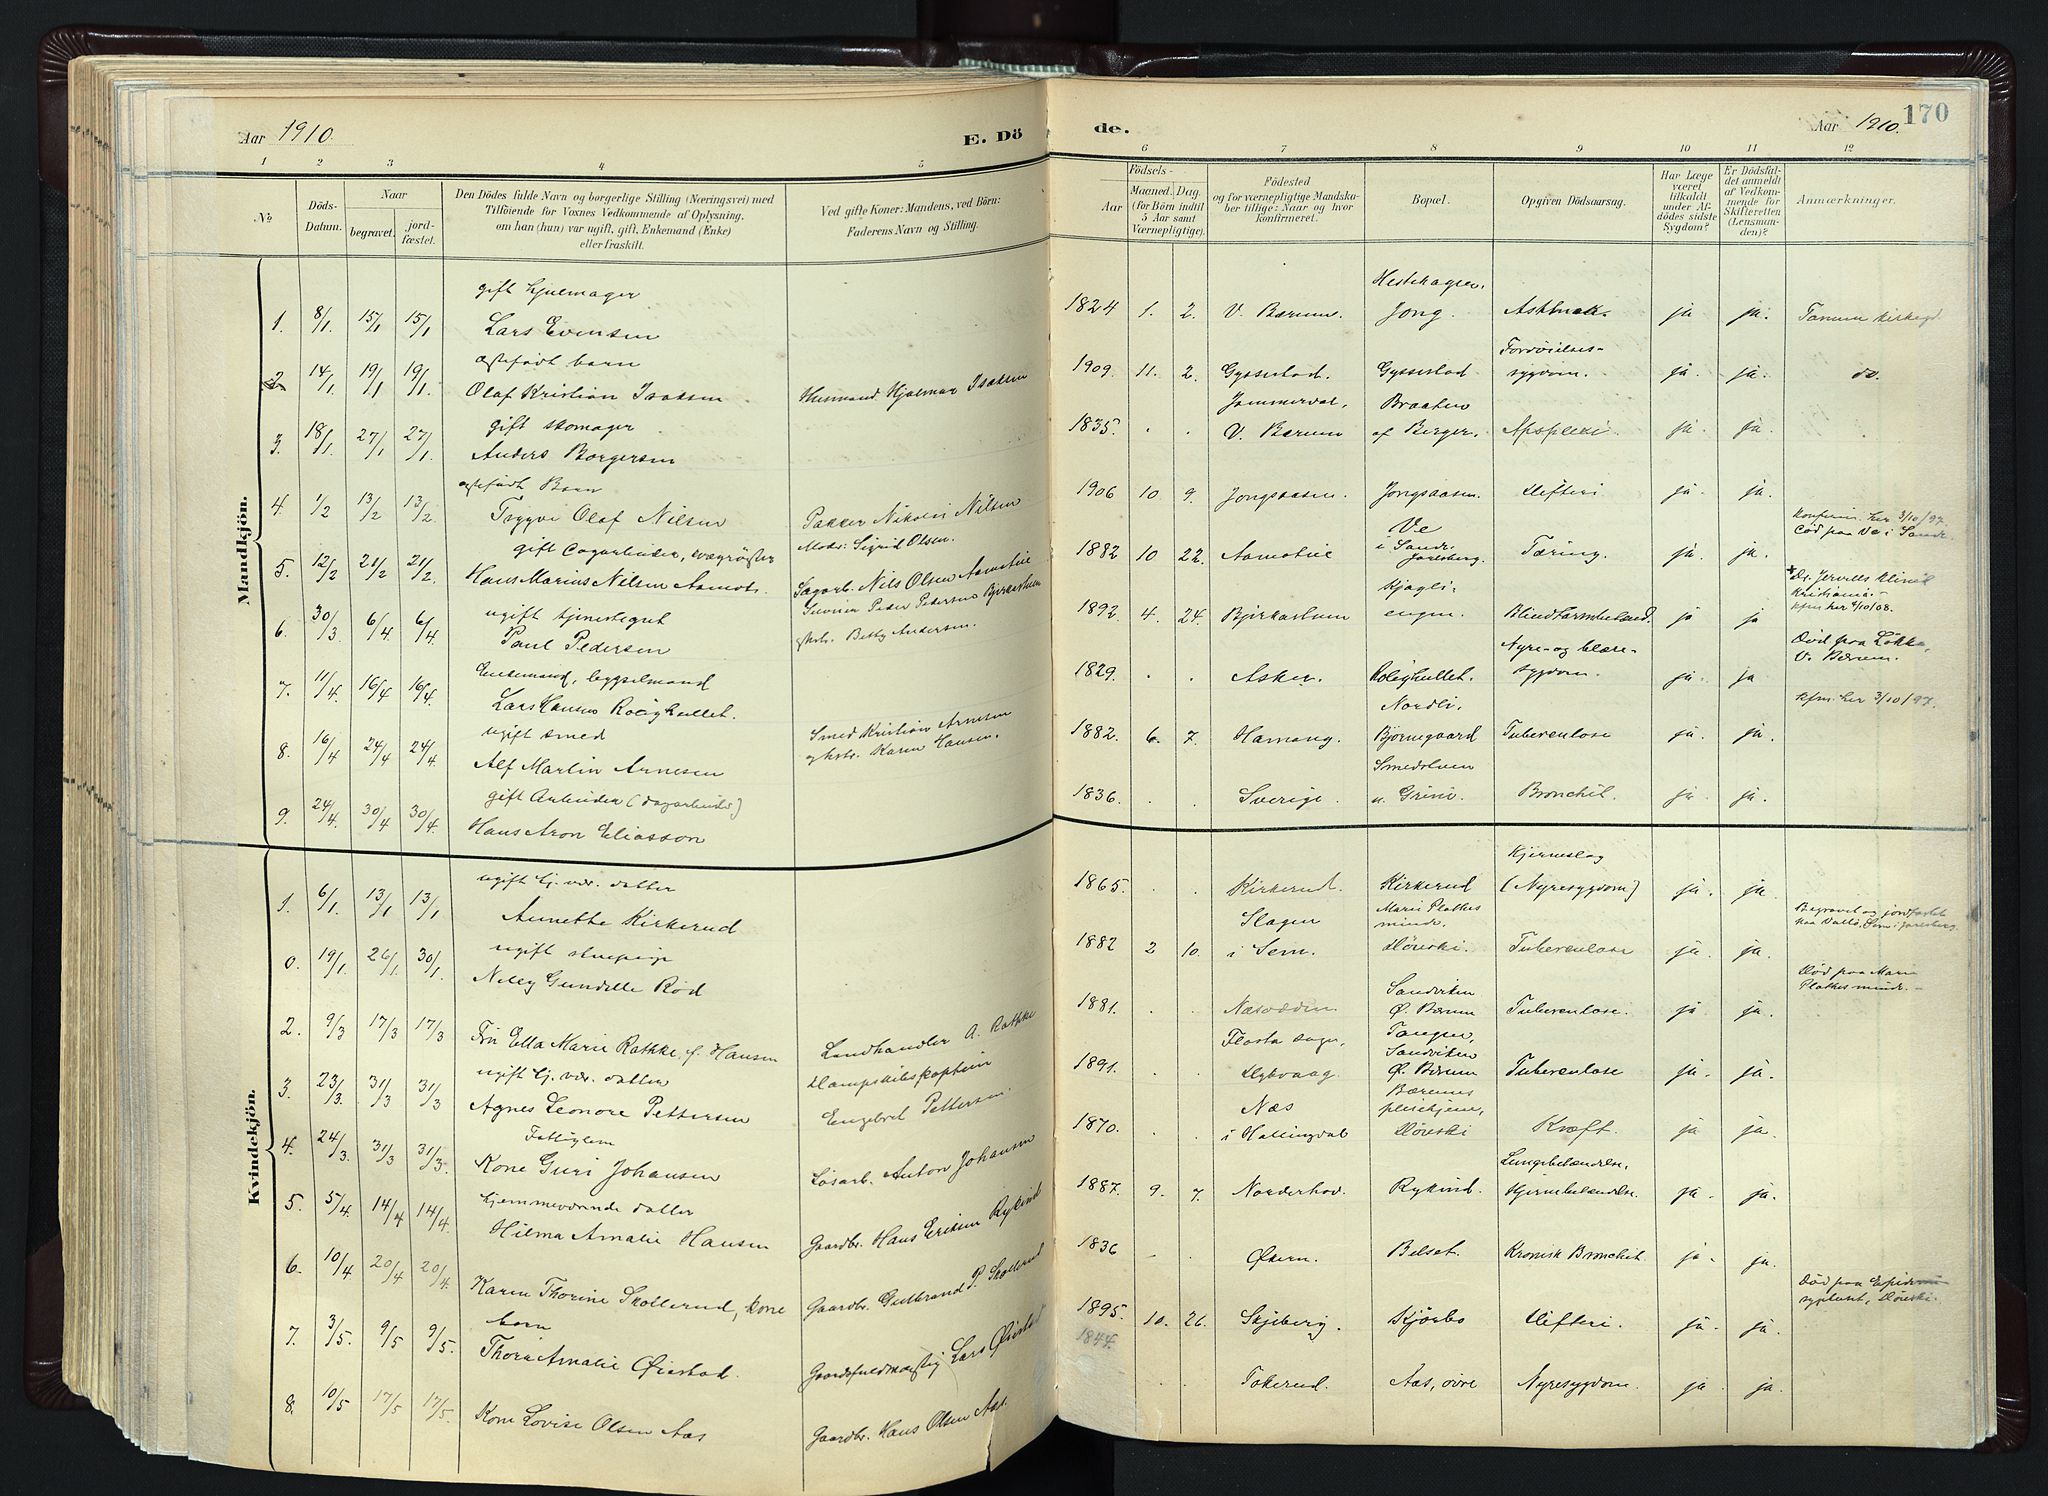 Aar 1910.
E. Dö
de.
Aar 1910.
170
1 2 3 4 5 6 7 8 9 10 11 12
No.
Döds-Datum.
Naar
begravet.
jord-fæstet.
Den Dödes fulde Navn og borgerlige Stilling (Næringsvei) med
Tilföiende for Voxnes Vedkommende af Oplysning,
om han (hun) var ugift, gift, Enkemand (Enke)
eller fraskilt.
Ved gifte Koner: Mandens, ved Börn:
Faderens Navn og Stilling.
Födsels-
Aar
Maaned. Dag.
(for Börn indtil
5 Aar samt
Værnepligtige).
Födested
og for værnepligtige Mandska-
ber tillige: Naar og hvor
konfirmeret.
Bopæl.
Opgiven Dödsaarsag.
Har Læge
været
tilkaldt
under Af-
dödes sidste
Sygdom?
Er Dödsfal-
det anmeldt
af Vedkom-
mende for
Skifteretten
(Lensman-
den)?
Anmærkninger.
Mandkjön.
gift hjulmager Hestehagen,
1. 8/1 15/1 15/1 Lars Evensen 1824 1. 2. V. Bærum. Jong. ja ja. Tanum kirkegd.
ægtefødt barn Fordøielses-
2 14/1 19/1 19/1 Olaf Kristian Isaksen Husmand Hjalmar Isaksen 1909. 11. 2. Gyssestad. Gyssestad sygdom. ja. ja. do.
gift skomager Jammerdal, Braaten
3. 18/1 27/1 27/1 Anders Borgersen 1835. . . V. Bærum af Berger. Apoplexi. ja. ja.
ægtefødt Barn
4. 1/2 13/2 13/2 Trygve Olaf Nilsen Pakker Nikolai Nilsen 1906 10. 9. Jongsaasen. Jongsaasen. Difteri ja. ja.
Moder: Sigrid Olsen.
konfirm. her 3/10/97.
Død paa Ve i Sande
5. 12/2 21/2 21/2 Hans Marius Nilsen Aamot. Sagarb. Nils Olsen Aamotue 1882 10 22. Aamotue Ve i Sande Jarlsberg. Tæring. ja. ja.
Dr. Jervells klinik
Kristiania.
kfm her 4/10/08.
ugift tjenestegut
6. 30/3 6/4 6/4 Paul Pedersen Peder Pedersen Bjerkaslum 1892. 4. 24. Bjerkaslum Skjæglieengen. ja ja
og hstr. Betty Andersen.
Død paa Løkke,
V. Bærum.
Enkemand, Nyre- og blære-
7. 11/4. 16/4 16/4. Lars Hansen Rolighullet. 1829. . . Asker. Rolighullet. sygdom. ja. ja
kfm. her 3/10/97.
ugift smed Nordli,
8. 16/4 24/4 24/4. Alf Martin Arnesen Smed Kristian Arnesen 1882. 6. 7. Hamang. Bjørnegaard Tuberculose ja. ja.
og hstr. Karen Hansen.
gift Arbeider (dagarbeider) Smedstuen
9. 24/4. 30/4 30/4. Hans Aron Eliasson 1836. . . Sverige. u. Grini. Bronchit. ja. ja.
Kvindekjön.
ugift hj. vær. datter Hjerneslag
1. 6/1. 13/1 13/1 Annette Kirkerud 1865. . . Kirkerud. Kirkerud (Nyresygdom) ja. ja.
Slagen Marie Plathes minde,
Begravet og jordfæstet
paa Vallø, Sem i Jarlsberg.
0. 19/1. 26/1. 30/1. Nelly Gundelle Rød 1882 2 10. i Sem. Døreski. Tuberculose ja. ja.
Død paa Marie
Plathes minde.
Sandviken
2. 9/3 17/3 17/3 Fru Ella Marie Rathke f. Hansen Landhandler A. Rathke 1881. . . Næsodden Ø. Bærum Tuberculose. ja. ja.
ugift hj. vær. datter Dampskibskaptein Flosta sogn, Tangen, Sandviken
3. 23/3. 31/3 31/3 Agnes Leonore Pettersen Engebret Pettersen 1891. . . Dybvaag. Ø. Bærum Tuberculose ja. ja.
Fattiglem Næs Bærums pleiehjem,
4. 24/3. 31/3 31/3. Kone Guri Johansen Løsarb. Anton Johansen 1870. . . i Hallingdal Døreski Kræft. ja ja.
hjemmeværende datter Lungebetændelse,
5. 5/4. 14/4 14/4. Hilma Amalie Hansen Gaardbr. Hans Eriksen Rykind 1887. 9. 7. Norderhov. Rykind. Hjernebetændelse. ja. ja.
6. 10/4 20/4 20/4. Karen Thorine Skollerud, kone Gaardbr. Gulbrand P. Skollerud 1836 . . Økern. Belset. Kronisk Bronchit. ja. ja.
barn
Død paa Epidemi
sygehuset, Døreski.
7. 3/5. 9/5 9/5. Thora Amalie Øiestad. Gaardsfuldmægtig Lars Øiestad 1895. 10. 26. Skjeberg. Kjørbo Difteri. ja. ja.
1844.
8. 10/5 17/5 17/5. Kone Lovise Olsen Aas Gaardbr. Hans Olsen Aas. . . Tokerud. Aas, øvre Nyresygdom. ja ja.